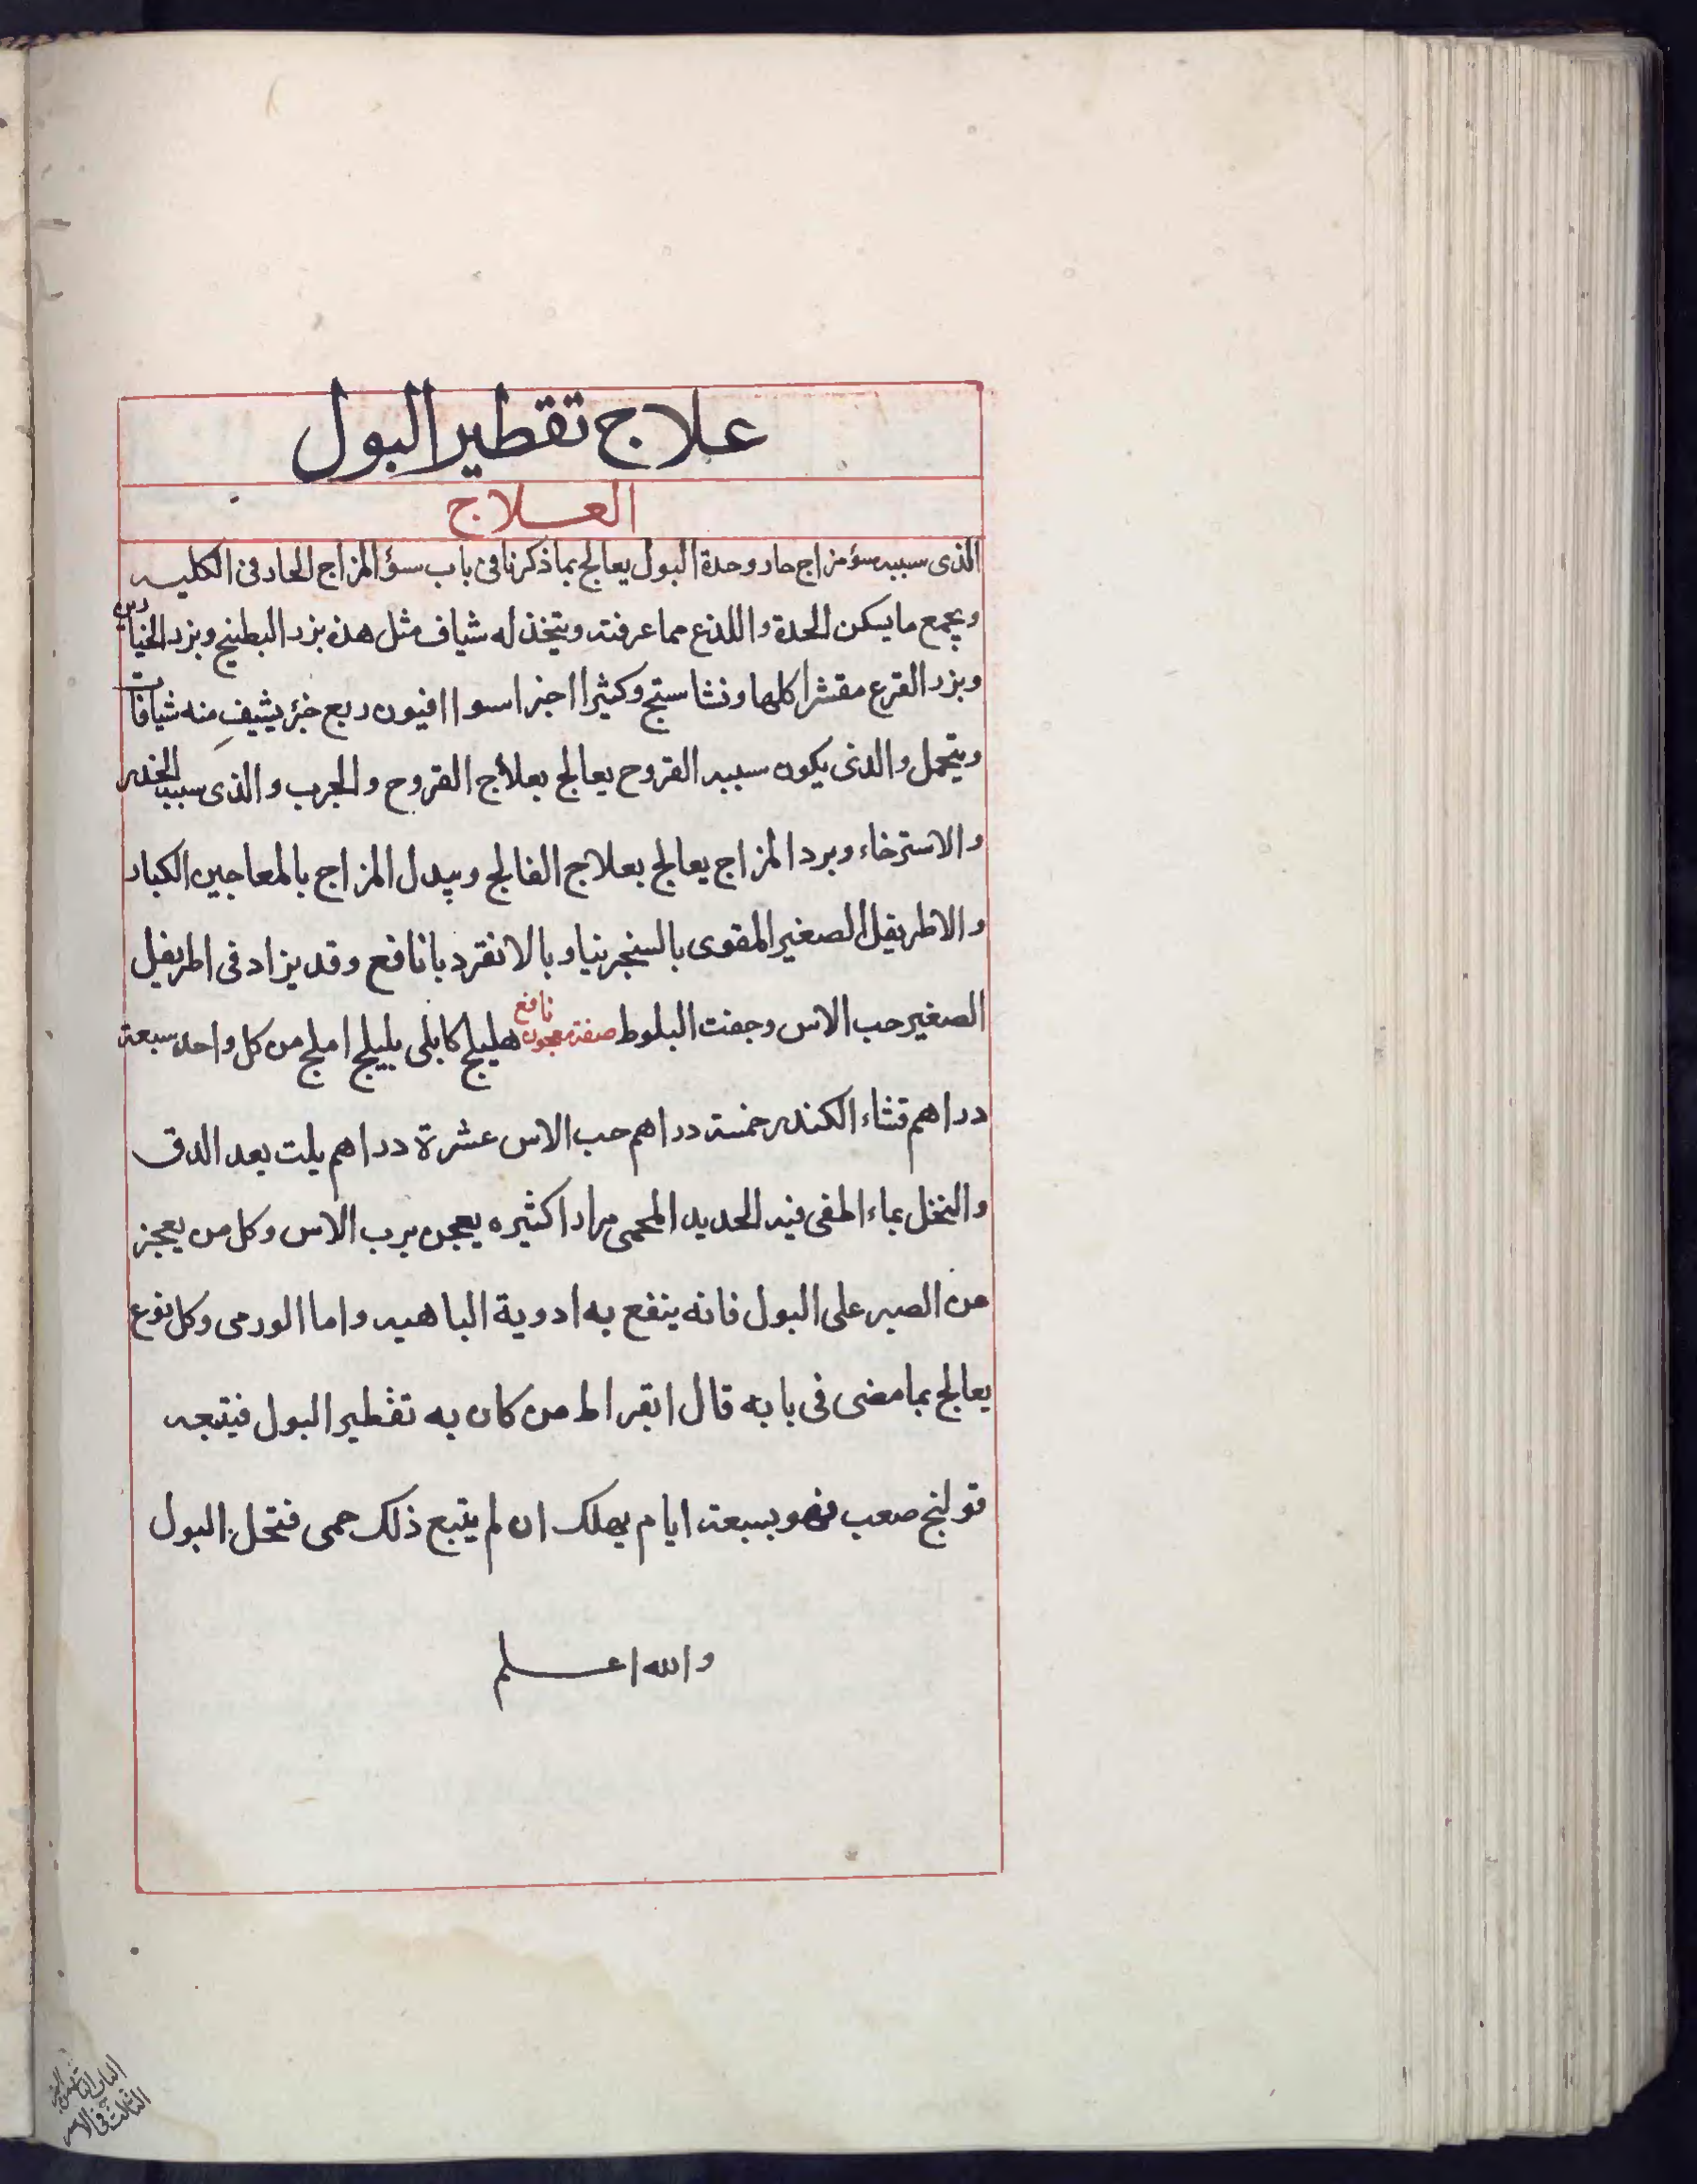 علاج تقطير البول
العلاج
الذى سببه سؤ مزاج حار وحدة البول يعالج بما ذكرنا فى باب سؤ المزاج الحار فى الكليه
ويجمع ما يسكن الحدة واللذع مما عرفته ويتخذ له شياف مثل هذه بزر البطيخ وبزر الخيارين
وبزر القرع مقشرا كلها ونشاستج وكثيرا اجزا سوا افيون ربع جزء يشيف منه شيافات
ويتحمل والذى يكون سببه القروح يعالج بعلاج القروح والجرب والذى سببه الخدر
والاسترخاء وبرد المزاج يعالج بعلاج الفالج ويبدل المزاج بالمعاجين الكبار
والاطريفل الصغير المقوى بالسنجرنيا وبالانقرديا نافع وقد يزاد فى اطريفل
الصغير حب الاس وجفت البلوط صفة معجون نافع هليلج كابلى بليلج املج من كل واحد سبعة
دراهم قشاء الكندر خمسة دراهم حب الاس عشرة دراهم يلت بعد الدق
والنخل بماء اطفى فيه الحديد المحمى مرارا كثيره يعجن برب الاس وكل من يعجز
من الصبر على البول فانه ينفع به ادوية الباهيه واما الورمى وكل نوع
يعالج بما مضى فى بابه قال ابقراط من كان به تقطير البول فيتبعه
قولنج صعب فهو بسبعة ايام يهلك ان لم يتبع ذلك حمى فتحل البول
والله اعلم